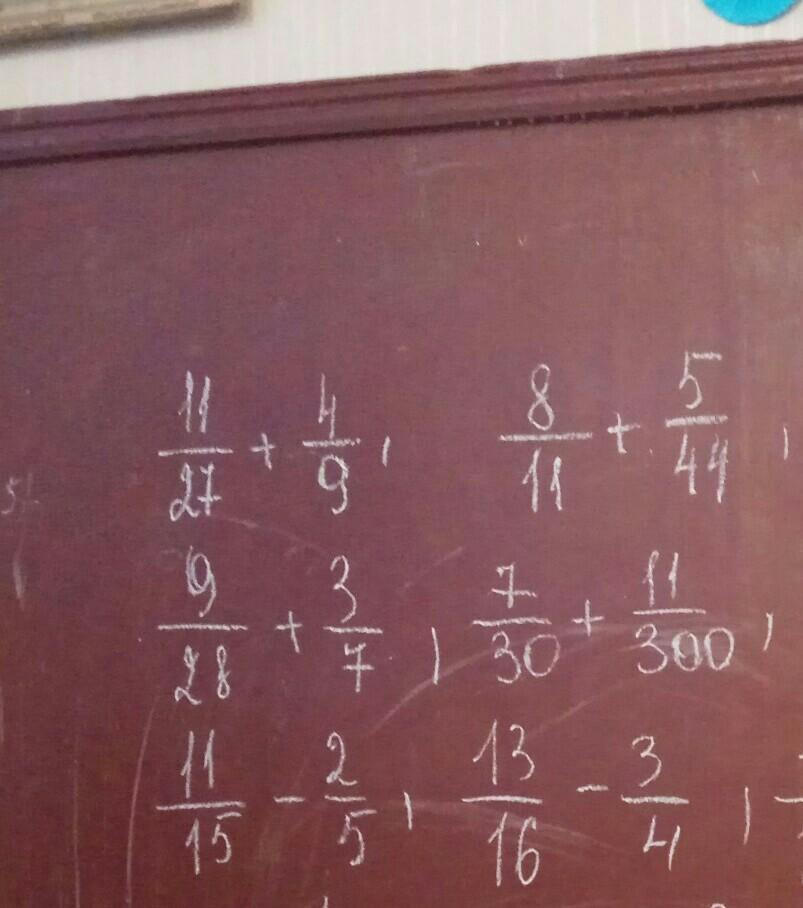 11/27 + 4/9, 8/11 + 5/44,
9/28 + 3/7, 7/30 + 11/300,
11/15 - 2/5, 13/16 - 3/4,